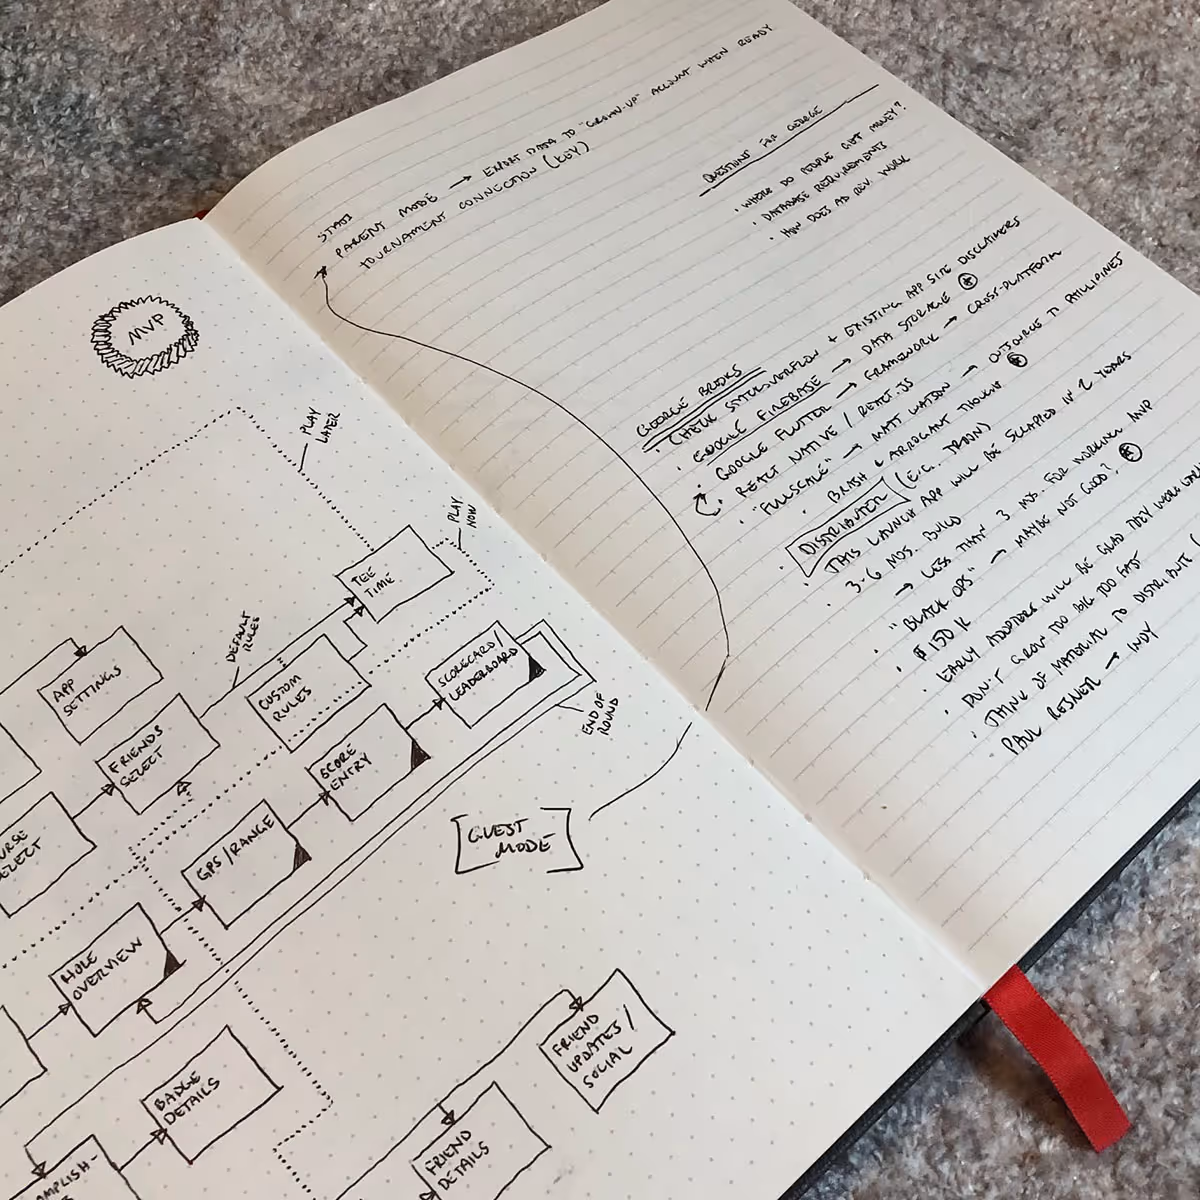 MVP
PLAY
LATER
PLAY
NOW
TEE
TIME
DEFAULT
RULES
APP
SETTINGS
FRIENDS
SELECT
CUSTOM
RULES
SCORECARD/
LEADERBOARD
END OF
ROUND
SCORE
ENTRY
GPS/RANGE
HOLE
OVERVIEW
GUEST
MODE
BADGE
DETAILS
FRIEND
UPDATES/
SOCIAL
FRIEND
DETAILS
STATS
PARENT MODE → EXPORT DATA TO "GROWN-UP" ACCOUNT WHEN READY
TOURNAMENT CONNECTION (KEY)
QUESTIONS FOR GEORGE
• WHERE DO PEOPLE GET MONEY?
• DATABASE REQUIREMENTS
• HOW DOES AD REV. WORK
GEORGE BROOKS
• CHECK STACKOVERFLOW + EXISTING APP SITE DISCLAIMERS
• GOOGLE FIREBASE → DATA STORAGE
• GOOGLE FLUTTER → FRAMEWORK → CROSS-PLATFORM
• REACT NATIVE / REACT.JS
• "FULLSCALE" → MATT WATSON → OUTSOURCE TO PHILLIPINES
• BRASH & ARROGANT THOUGHT
DISTRIBUTER (E.G. TROON)
• THIS LAUNCH APP WILL BE SCRAPPED IN 2 YEARS
• 3-6 MOS. BUILD
→ LESS THAN 3 MOS. FOR WORKING MVP
• "BLACK OPS" → MAYBE NOT GOOD?
• $150K
• EARLY ADOPTERS WILL BE GLAD THEY WERE
• DON'T GROW TOO BIG TOO FAST
• THINK OF MATERIALS TO DISTRIBUTE
PAUL → INDY